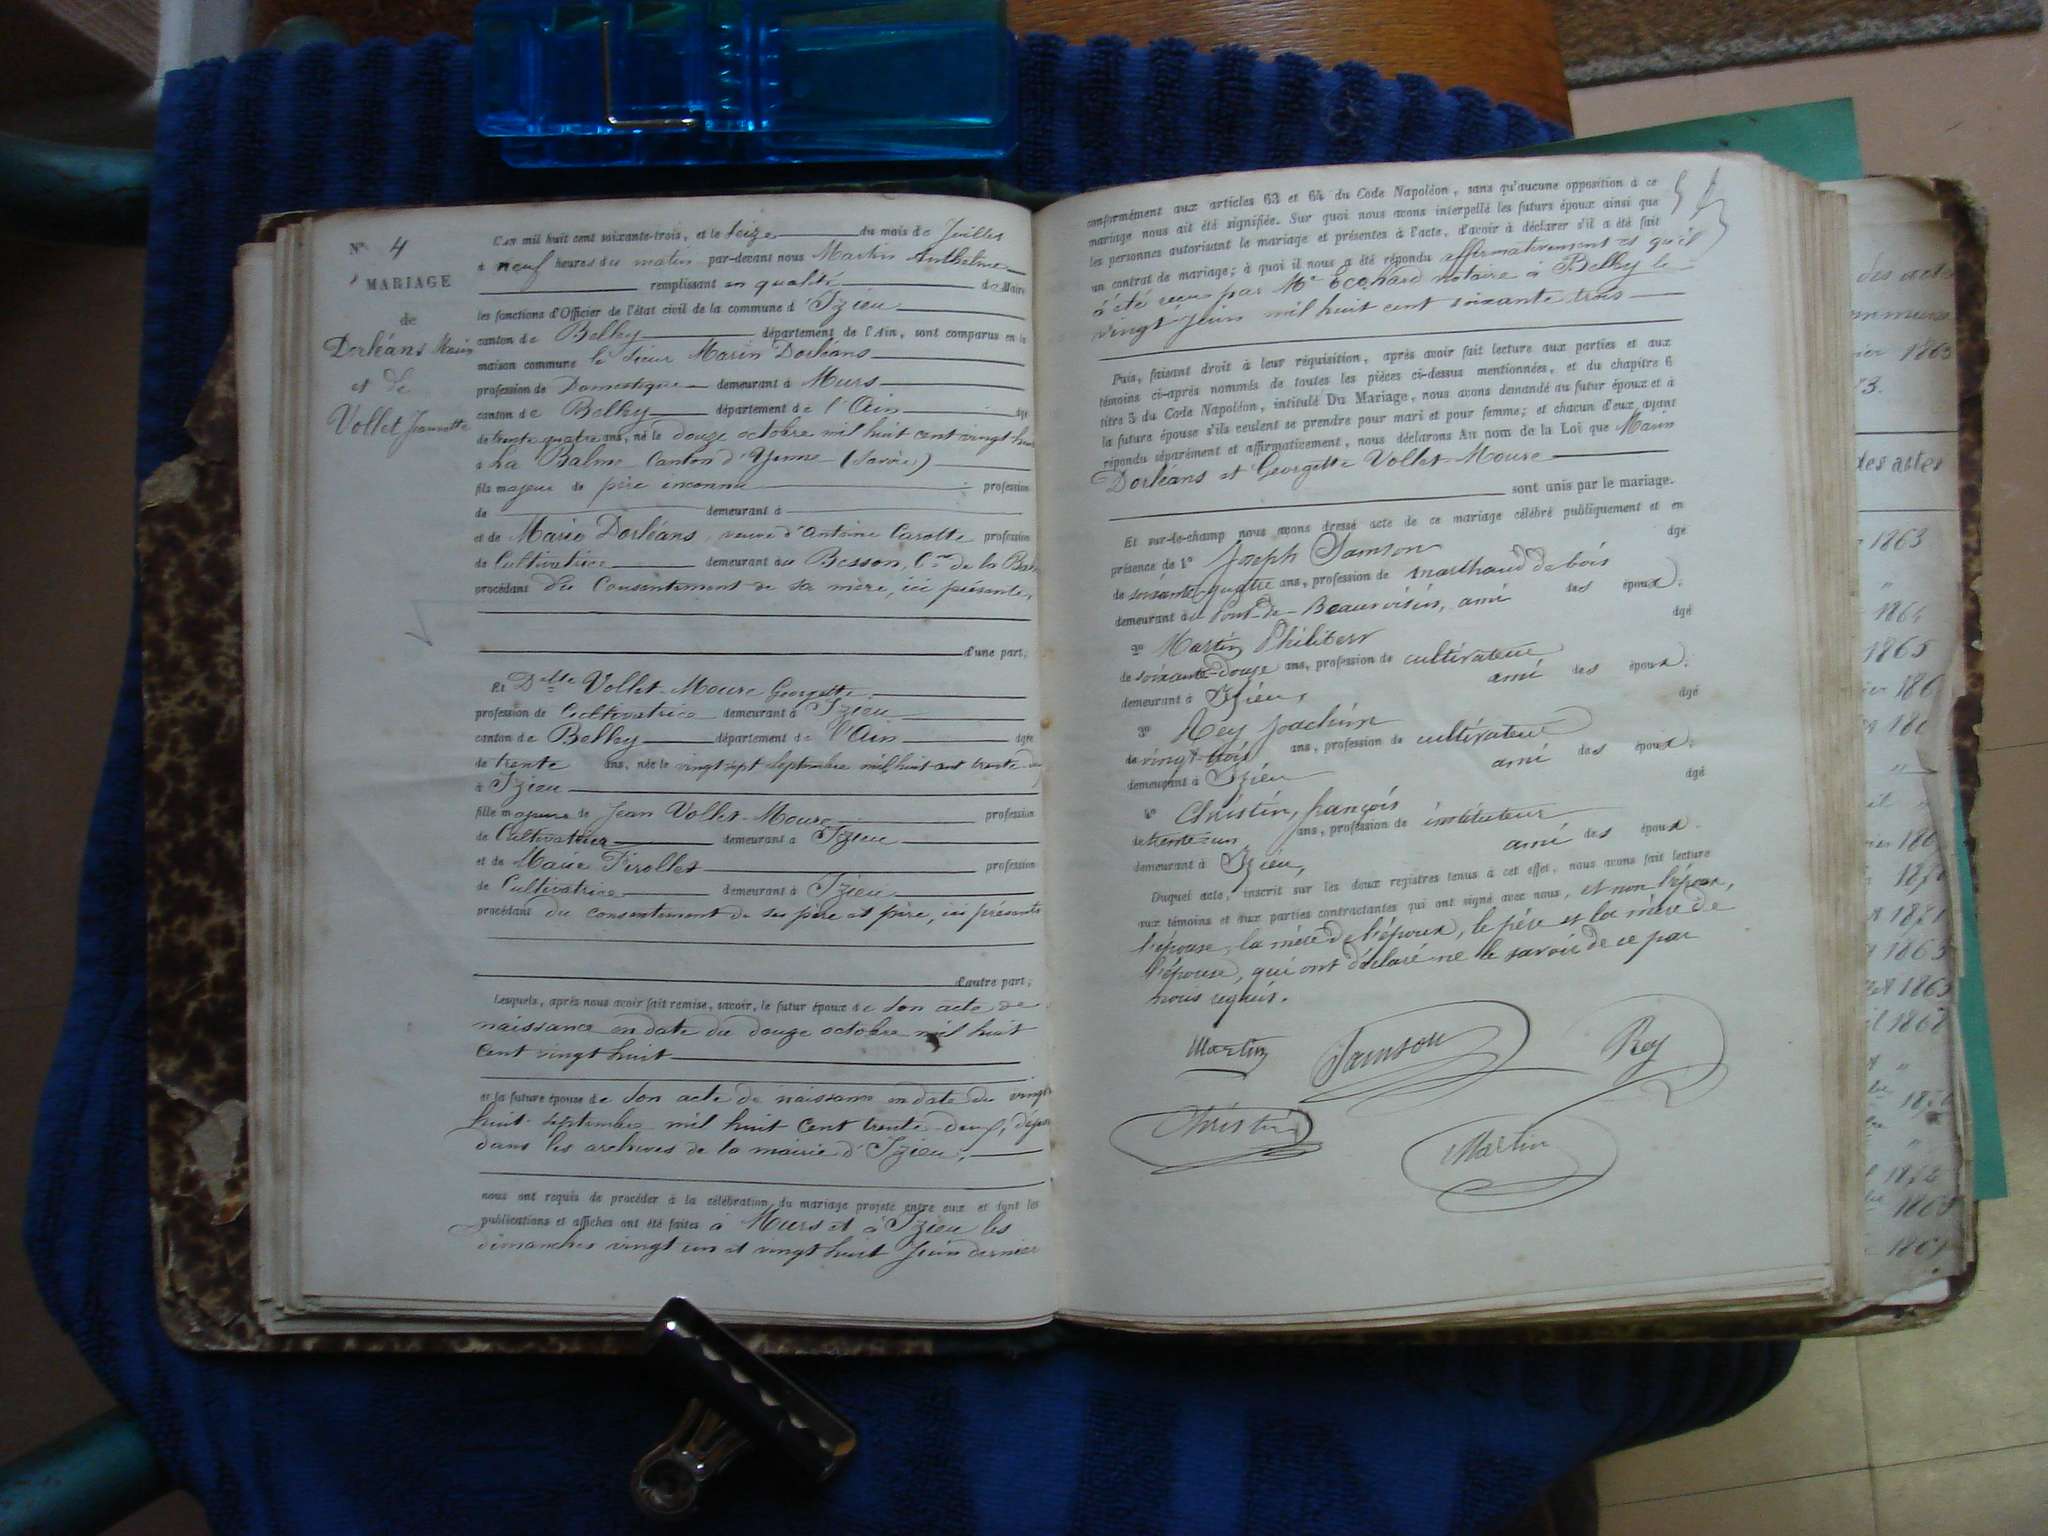 N° 4
MARIAGE
de
Dorléans Marin
et de
Vollet Jeannette
L'an mil huit cent soixante-trois, et le seize du mois de Juillet
à neuf heures du matin par-devant nous Martin Anthelme
remplissant en qualité de Maire
les fonctions d'Officier de l'état civil de la commune d'Izieu
canton de Belley département de l'Ain, sont comparus en la
maison commune le sieur Marin Dorléans
profession de Domestique demeurant à Murs
canton de Belley département de l'Ain âgé
de trente quatre ans, né le douze octobre mil huit cent vingt huit
à La Balme Canton d'Yenne (Savoie)
fils majeur de père inconnu profession
de demeurant à
et de Marie Dorléans, veuve d'Antoine Carotte profession
de Cultivatrice demeurant au Besson, Cne de la Balme
procédant du Consentement de sa mère, ici présente,
d'une part;
Et Delle Vollet-Moure Georgette
profession de Cultivatrice demeurant à Izieu
canton de Belley département de l'Ain âgée
de trente ans, née le vingt sept septembre mil huit cent trente-
à Izieu
fille majeure de Jean Vollet-Moure profession
de Cultivateur demeurant à Izieu
et de Marie Pirollet profession
de Cultivatrice demeurant à Izieu
procédant du consentement de ses père et père, ici présents
d'autre part;
Lesquels, après nous avoir fait remise, savoir, le futur époux de son acte de
naissance en date du douze octobre mil huit
cent vingt huit
et la future épouse de son acte de naissance en date du vingt
huit septembre mil huit cent trente-deux, déposé
dans les archives de la mairie d'Izieu,
nous ont requis de procéder à la célébration du mariage projeté entre eux et dont les
publications et affiches ont été faites à Murs et à Izieu les
dimanches vingt un et vingt huit Juin dernier
conformément aux articles 63 et 64 du Code Napoléon, sans qu'aucune opposition à ce
mariage nous ait été signifiée. Sur quoi nous avons interpellé les futurs époux ainsi que
les personnes autorisant le mariage et présentes à l'acte, d'avoir à déclarer s'il a été fait
un contrat de mariage; à quoi il nous a été répondu affirmativement et qu'il
a été reçu par Me Ecohard notaire à Belley le
vingt Juin mil huit cent soixante trois
Puis, faisant droit à leur réquisition, après avoir fait lecture aux parties et aux
témoins ci-après nommés de toutes les pièces ci-dessus mentionnées, et du chapitre 6
titre 5 du Code Napoléon, intitulé Du Mariage, nous avons demandé au futur époux et à
la future épouse s'ils veulent se prendre pour mari et pour femme; et chacun d'eux ayant
répondu séparément et affirmativement, nous déclarons Au nom de la Loi que Marin
Dorléans et Georgette Vollet-Moure
sont unis par le mariage.
Et sur-le-champ nous avons dressé acte de ce mariage célébré publiquement et en
présence de 1° Joseph Samson âgé
de soixante-quatre ans, profession de marchand de bois
demeurant au Pont-de-Beauvoisin, ami des époux.
2° Martin Philibert âgé
de soixante-douze ans, profession de cultivateur
demeurant à Izieu, ami des époux.
3° Rey Joachim âgé
de vingt-trois ans, profession de cultivateur
demeurant à Izieu ami des époux.
4° Christin, françois âgé
de trente-un ans, profession de instituteur
demeurant à Izieu, ami des époux.
Duquel acte, inscrit sur les deux registres tenus à cet effet, nous avons fait lecture
aux témoins et aux parties contractantes qui ont signé avec nous, et non l'époux,
l'épouse, la mère de l'époux, le père et la mère de
l'épouse, qui ont déclaré ne le savoir de ce par
nous requis.
Martin Samson Rey
Christin Martin
des actes
1863
3.
des actes
1863
"
1864
1865
186
"
1871
1863
1863
1868
"
"
1863